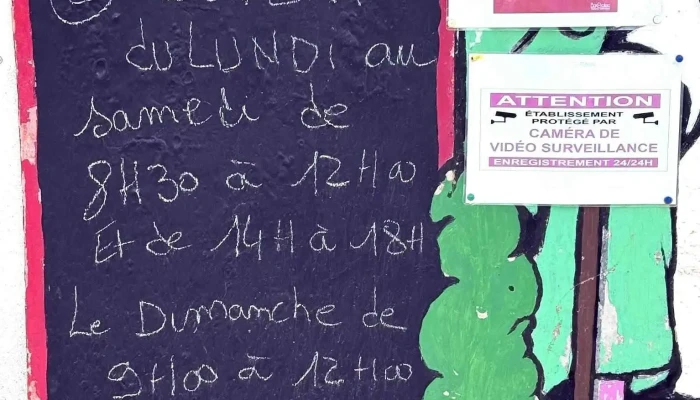 du LUNDI au
samedi de
8H30 à 12H00
Et de 14H à 18H
Le Dimanche de
9H00 à 12H00
ATTENTION
ÉTABLISSEMENT
PROTÉGÉ PAR
CAMÉRA DE
VIDÉO SURVEILLANCE
ENREGISTREMENT 24/24H